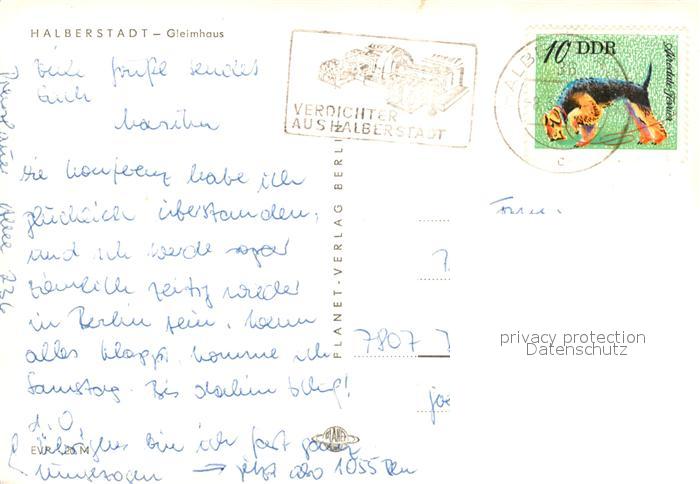 HALBERSTADT – Gleimhaus
viele Grüße sendet
Euch
VERDICHTER
AUS HALBERSTADT
10 DDR
Die Konferenz habe ich
glücklich überstanden,
und ich werde sogar
ziemlich zeitig wieder
in Berlin sein. Wenn
alles klappt, komme ich
Samstag. Bis dahin
d. O.
Übrigens bin ich fast ganz
umgezogen → jetzt also 1055 Bln
PLANET-VERLAG BERLIN
PLANET
7807
EVP 20 M
privacy protection
Datenschutz